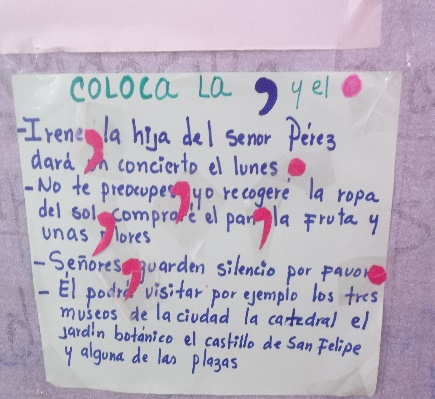 COLOCA LA , y el .
- Irene, la hija del señor Pérez,
dará un concierto el lunes.
- No te preocupes, yo recogeré la ropa
del sol, compraré el pan, la fruta y
unas flores
- Señores, guarden silencio por favor.
- Él podrá, visitar por ejemplo los tres
museos de la ciudad la catedral el
jardín botánico el castillo de San Felipe
y alguna de las plazas